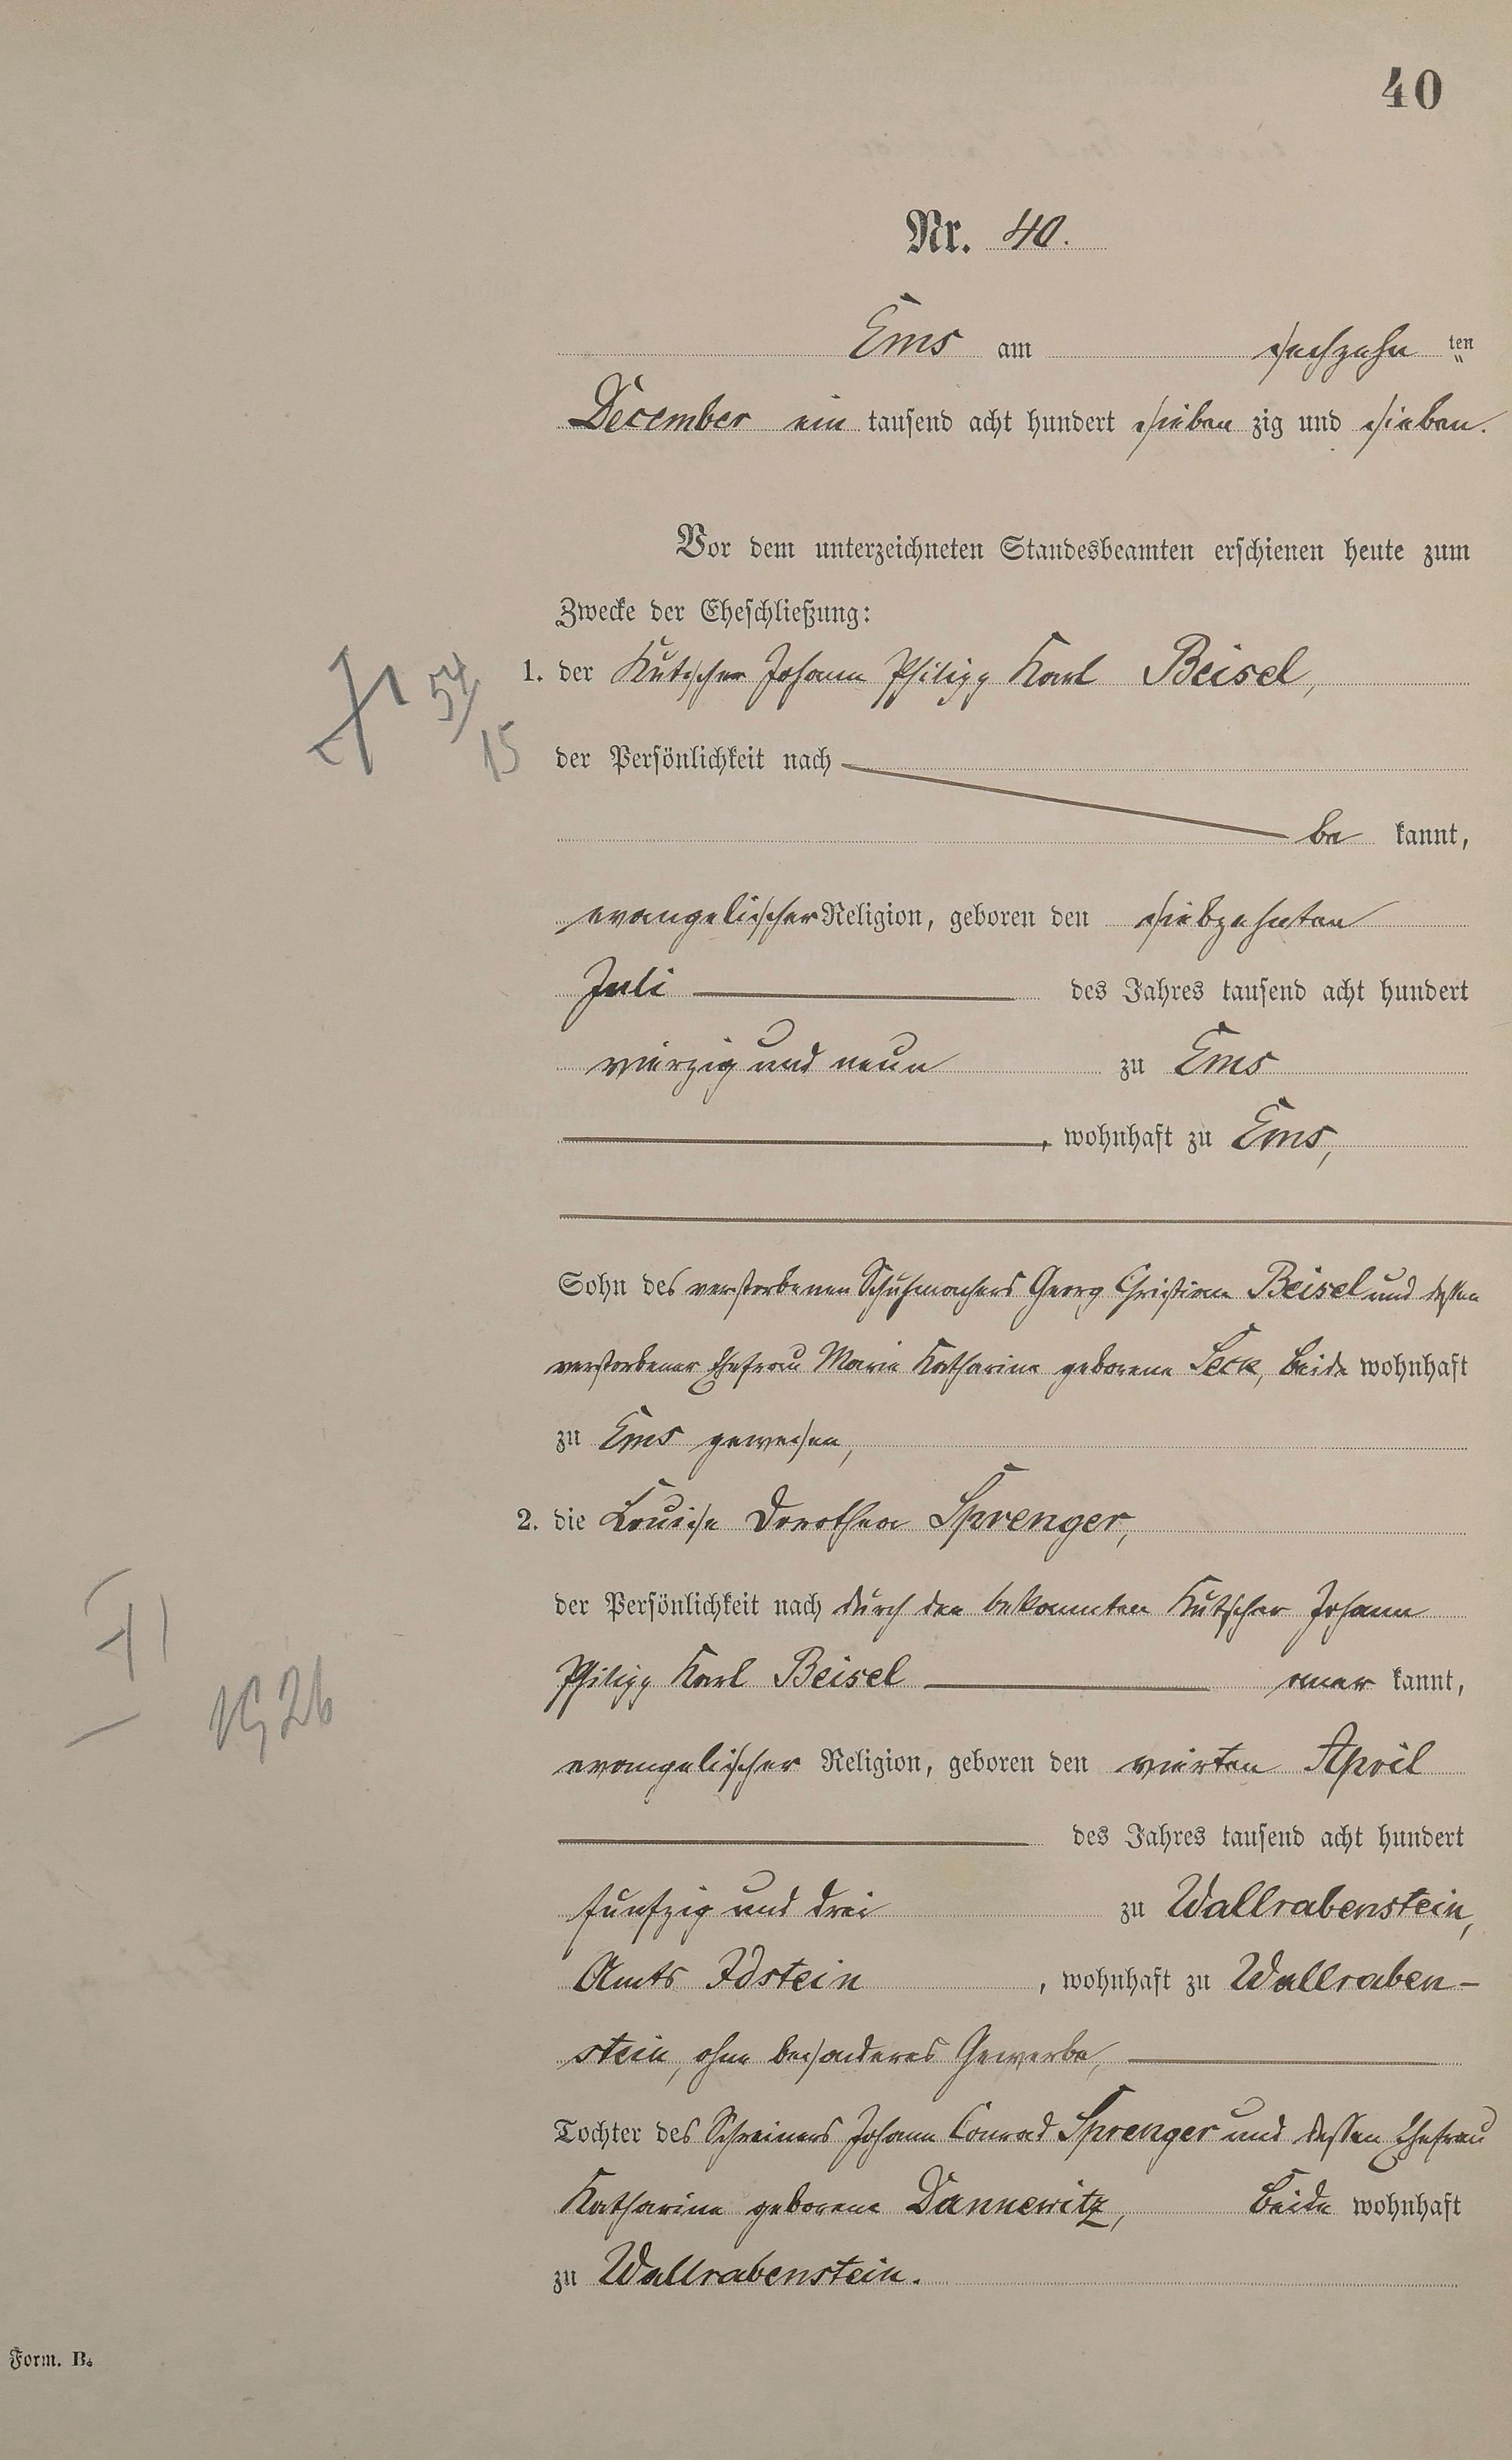 40
Nr. 40.
Ems am sechzehn ten
December ein tausend acht hundert sieben zig und sieben.
Vor dem unterzeichneten Standesbeamten erschienen heute zum
Zwecke der Eheschließung:
1. der Kutscher Johann Philipp Karl Beisel,
54/15
der Persönlichkeit nach
be kannt,
evangelischer Religion, geboren den siebzehnten
Juli des Jahres tausend acht hundert
vierzig und neun zu Ems
, wohnhaft zu Ems,
Sohn des verstorbenen Schuhmachers Georg Christian Beisel und dessen
verstorbener Ehefrau Marie Katharine geborene Seck, beide wohnhaft
zu Ems gewesen,
2. die Louise Dorothea Sprenger,
der Persönlichkeit nach durch den bekannten Kutscher Johann
Philipp Karl Beisel aner kannt,
evangelischer Religion, geboren den vierten April
des Jahres tausend acht hundert
fünfzig und drei zu Wallrabenstein,
Amts Idstein, wohnhaft zu Wallraben-
stein, ohne besonderes Gewerbe,
Tochter des Schreiners Johann Conrad Sprenger und dessen Ehefrau
Katharine geborene Dannewitz, beide wohnhaft
zu Wallrabenstein.
Form. B.